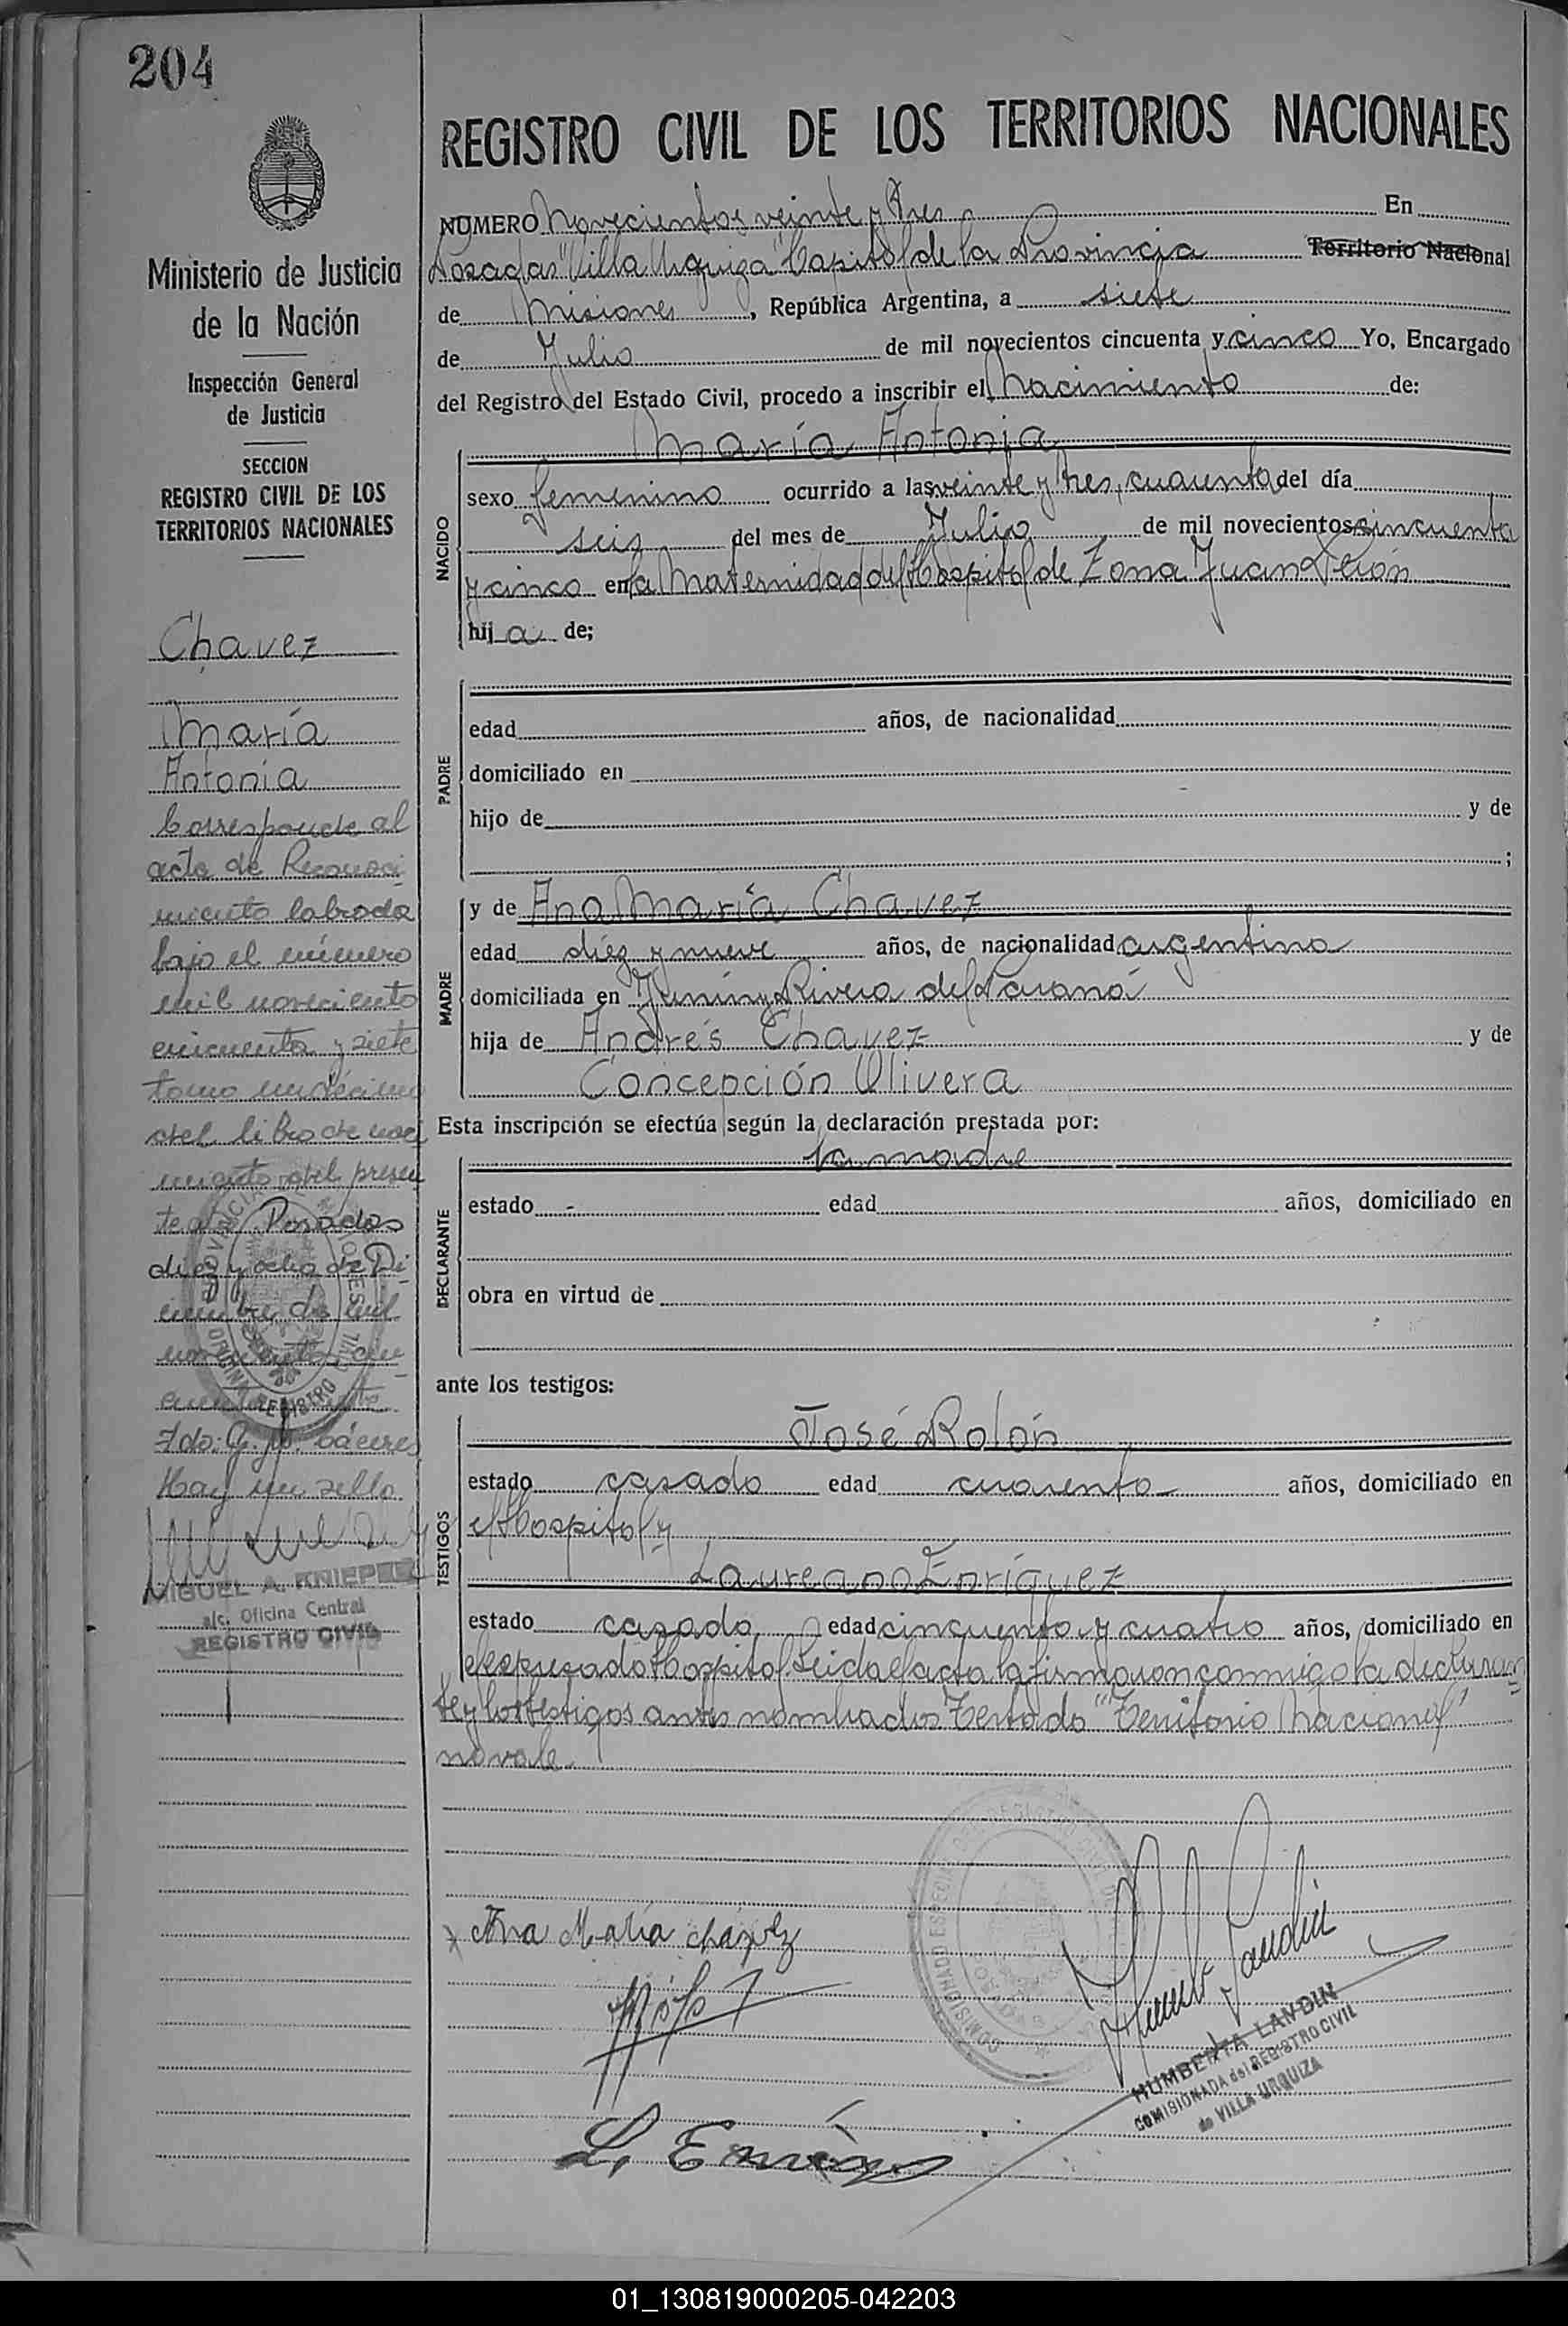 204
Ministerio de Justicia
de la Nación
Inspección General
de Justicia
SECCION
REGISTRO CIVIL DE LOS
TERRITORIOS NACIONALES
Chavez
María
Antonia
Corresponde al
acta de Reconoci
miento labrada
bajo el número
mil noveciento
cincuenta y siete
tomo undécimo
del libro de naci
miento del presen
te año Posadas
diez y ocho de Di
ciembre de mil
novecientos cin
cuenta
Fdo: G. Cáceres
Hay un sello
MIGUEL A. KNIEPEL
a/c. Oficina Central
REGISTRO CIVIL
REGISTRO CIVIL DE LOS TERRITORIOS NACIONALES
NUMERO Novecientos veinte y tres En
Posadas "Villa Urquiza" Capital de la Provincia Territorio Nacional
de Misiones, República Argentina, a siete
de Julio de mil novecientos cincuenta y cinco Yo, Encargado
del Registro del Estado Civil, procedo a inscribir el Nacimiento de:
María Antonia
NACIDO
sexo femenino ocurrido a las veinte y tres, cuarenta del día
seis del mes de Julio de mil novecientos cincuenta
y cinco en la Maternidad del Hospital de Zona Juan Perón
hija de;
PADRE
edad años, de nacionalidad
domiciliado en
hijo de y de
;
MADRE
y de Ana María Chavez
edad diez y nueve años, de nacionalidad argentina
domiciliada en Junín y Rivera del Paraná
hija de Andrés Chavez y de
Concepción Olivera
Esta inscripción se efectúa según la declaración prestada por:
DECLARANTE
la madre
estado - edad años, domiciliado en
obra en virtud de
ante los testigos:
TESTIGOS
José Rolón
estado casado edad cuarenta años, domiciliado en
el Hospital y
Laureano Enríquez
estado casado edad cincuenta y cuatro años, domiciliado en
el expresado Hospital. Leida el acta la firmaron conmigo la declaran
te y los testigos antes nombrados Testado "Territorio Nacional"
no vale.
x Ana María Chávez
L. Enríquez
HUMBERTA LANDIN
COMISIONADA del REGISTRO CIVIL
de VILLA URQUIZA
01_130819000205-042203